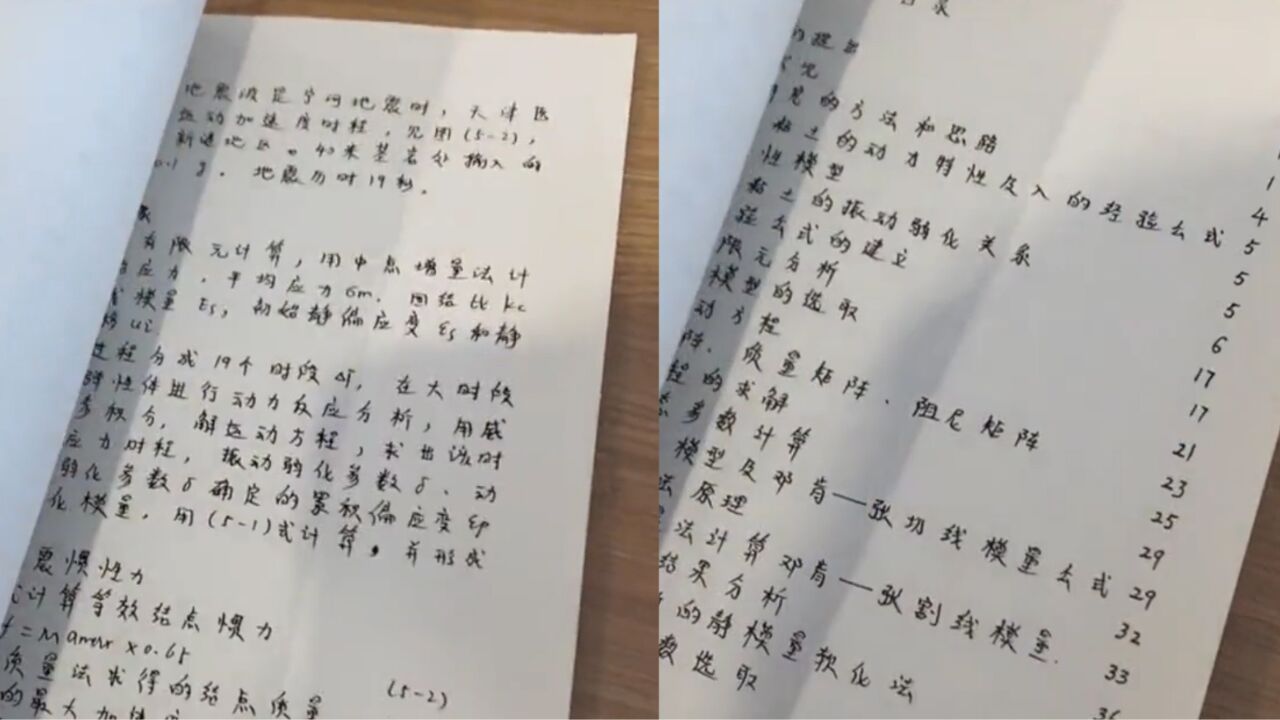 地震波是宁河地震时，天津医
运动加速度时程，见图(5-2)，
新港地区 40米基岩处输入的
0.1g. 地震历时19秒。
有限元计算，用中点增量法计
应力，平均应力σm. 固结比Kc
模量Es，初始静偏应变εs和静
ui
过程分成19个时段ΔT，在大时段
弹性体进行动力反应分析，用威
积分，解运动方程，求出该时
应力时程，振动弱化参数δ、动
弱化参数δ确定的累积偏应变εp
化模量，用(5-1)式计算，并形成
震惯性力
计算等效结点惯力
=M amax x0.65
(5-2)
质量法求得的结点质量
的最大加速度
目录
的方法和思路
1
粘土的动力特性及入的经验公式
4
性模型
5
粘土的振动弱化关系
5
验公式的建立
5
限元分析
6
模型的选取
17
动方程
17
阵、质量矩阵、阻尼矩阵
21
程的求解
23
参数计算
25
模型及邓肯——张切线模量公式
29
法原理
29
法计算邓肯——张割线模量.
32
结果分析
33
的静模量软化法
36
数选取